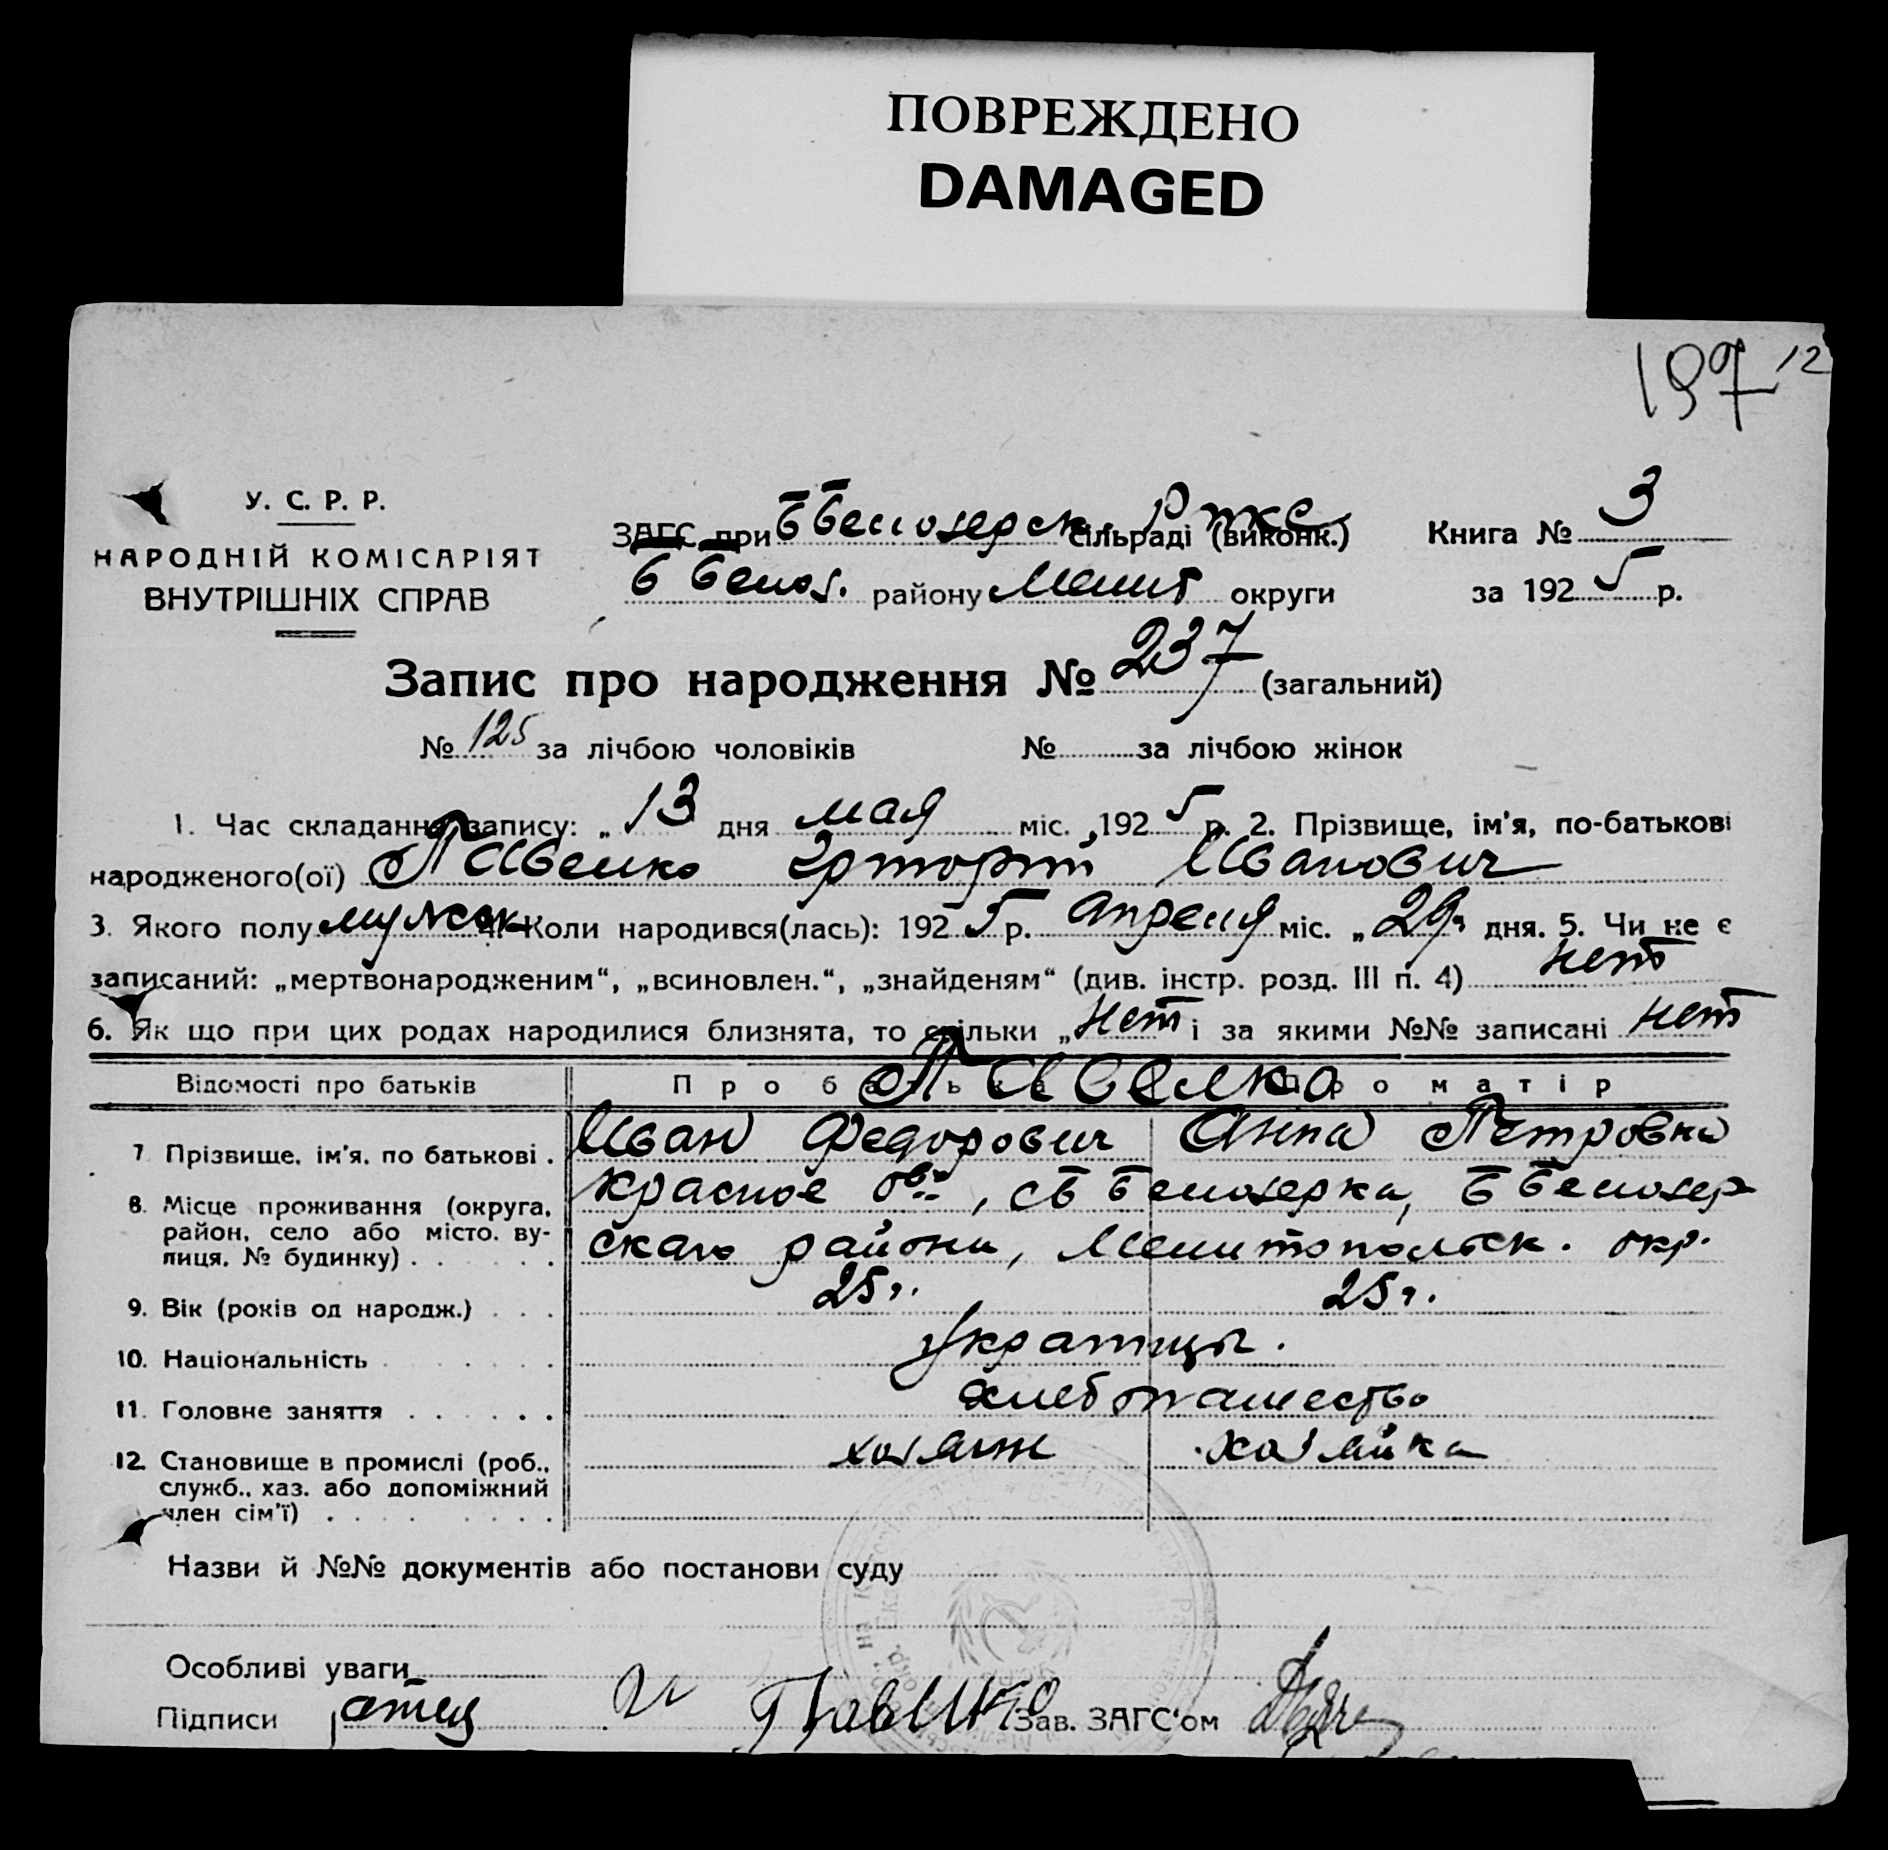 ПОВРЕЖДЕНО
DAMAGED
197 12
У. С. Р. Р.
НАРОДНІЙ КОМІСАРІЯТ
ВНУТРІШНІХ СПРАВ
ЗАГС при Б Белозерск. сільраді (виконк.)
Б Белоз. району Мелит округи
Книга № 3
за 1925 р.
Запис про народження № 237 (загальний)
№ 125 за лічбою чоловіків № за лічбою жінок
1. Час складання запису: „13 дня мая міс. 1925 р. 2. Прізвище, ім'я, по-батькові
народженого(ої) Павелко Иванович
3. Якого полу мужск 4. Коли народився(лась): 1925 р. Апреля міс. „29„ дня. 5. Чи не є
записаний: „мертвонародженим“, „всиновлен.“, „знайденям“ (див. інстр. розд. III п. 4) нет
6. Як що при цих родах народилися близнята, то скільки „нет і за якими №№ записані нет
Відомості про батьків Про батька Про матір
Павелко
7 Прізвище, ім'я, по батькові . Иван Федорович Анна Петровна
8. Місце проживання (округа, район, село або місто, вулиця, № будинку) . . . . . Красное , с Б Белозерка, Б Белозер
скаго района, Мелитопольск. окр.
9. Вік (років од народж.) . . . 25 г. 25 г.
10. Національність . . . . . . Украинцы.
11. Головне заняття . . . . . . хлебопашество
12. Становище в промислі (роб., служб., хаз. або допоміжний член сім'ї) . . . . . . . хозяин хозяйка
Назви й №№ документів або постанови суду
Особливі уваги
Підписи отец И Павелко Зав. ЗАГС'ом